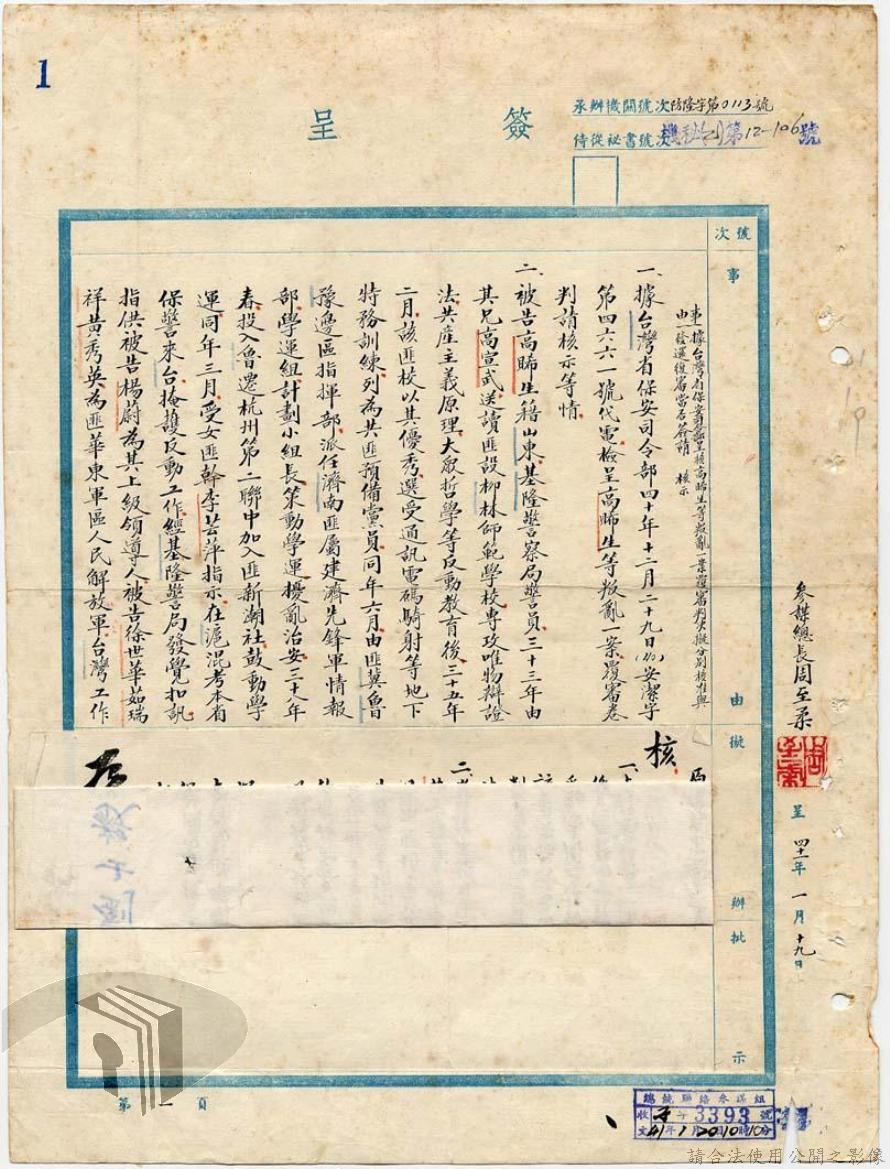 1
簽呈
承辦機關號次防隆字第0113號
侍從祕書號次機秘(乙)第12-106號
號次
事由
擬辦
批示
事由：據台灣省保安司令部呈核高晞生等叛亂一案覆審判決擬分別核准與
發還復審當否簽請　核示
一、據台灣省保安司令部四十年十二月二十九日(40)安潔字
第四六六一號代電檢呈高晞生等叛亂一案覆審卷
判請核示等情
二、被告高晞生籍山東基隆警察局警員三十三年由
其兄高宣武送讀匪設柳林師範學校專攻唯物辯證
法共產主義原理大眾哲學等反動教育後三十五年
二月該匪校以其優秀選受通訊電碼騎射等地下
特務訓練列為共匪預備黨員同年六月由匪冀魯
豫邊區指揮部派任濟南匪屬建濟先鋒軍情報
部學運組計劃小組長策動學運擾亂治安三十八年
春投入魯遷杭州第二聯中加入匪新潮社鼓動學
運同年三月受女匪幹李芸萍指示在滬混考本省
保警來台掩護反動工作經基隆警局發覺扣訊
指供被告楊蔚為其上級領導人被告徐世華茹瑞
祥黃秀英為匪華東軍區人民解放軍台灣工作
核
參謀總長周至柔
呈 四十一年一月十九日
第一頁
總統府聯絡參謀組
收 子 3393 號
文 41年1月20日10時10分
請合法使用公開之影像